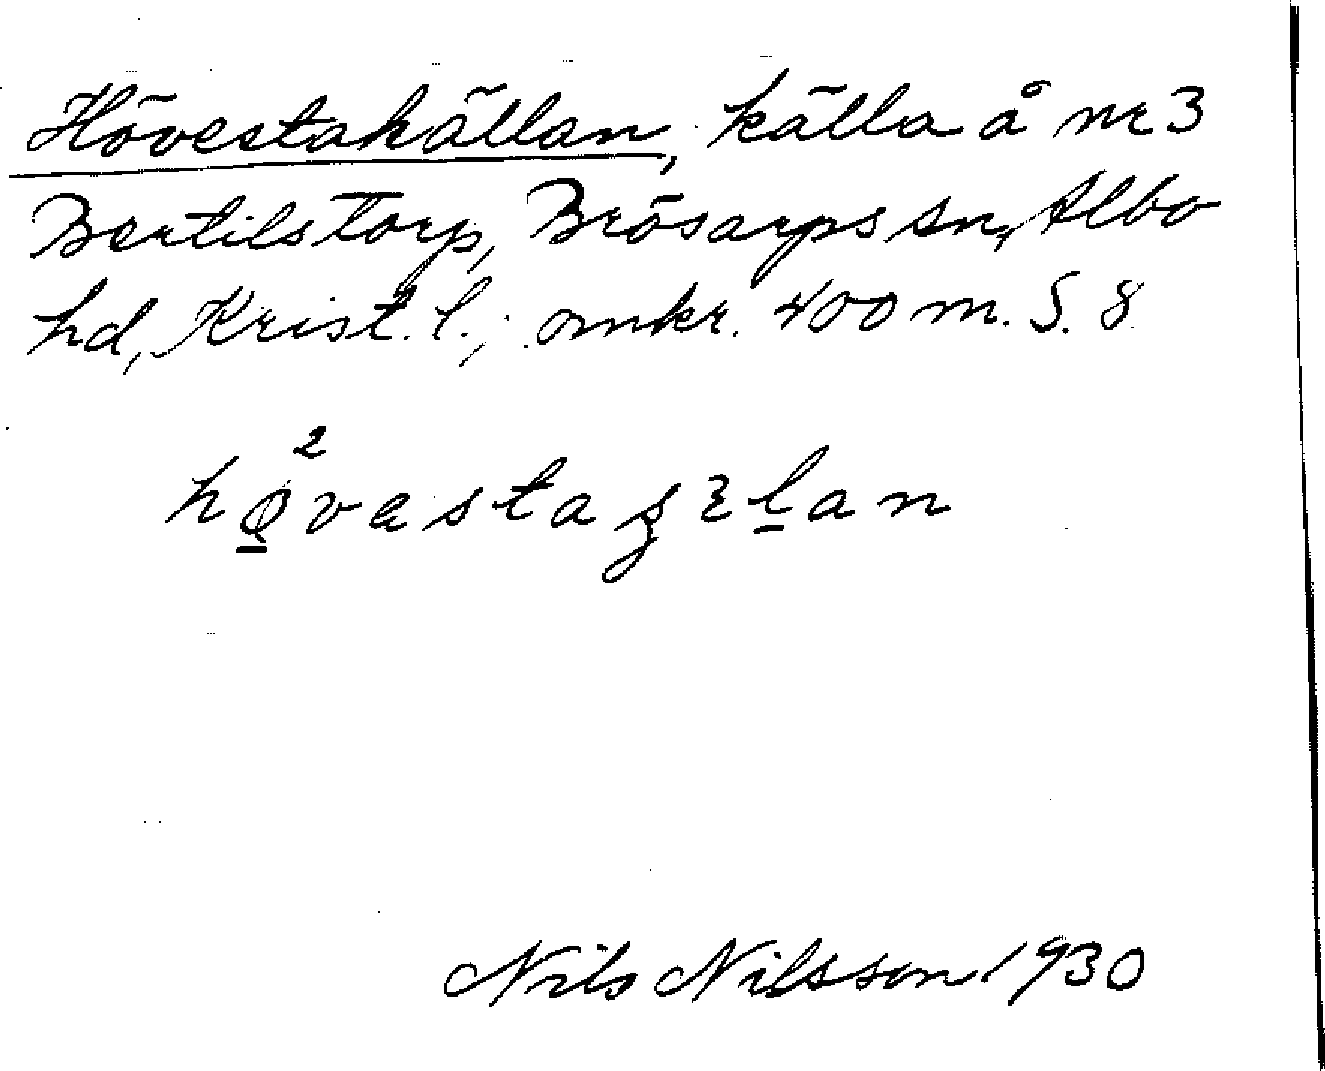 Hövestakällan, källa å nr 3
Bertilstorp, Brösarps sn, Albo
hd, Krist. l.; omkr. 400 m. S. 8
2
Nils Nilsson 1930